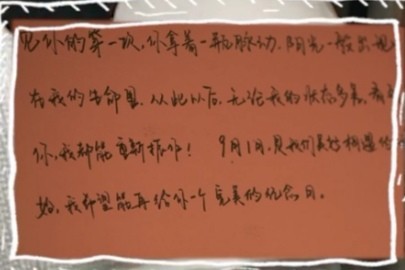 见你的第一次，你拿着一瓶脉动，阳光一般出现
在我的生命里，从此以后，无论我的状态多差，看
你，我都能重新振作！ 9月1日，是我们美好相遇的
始，我希望能再给你一个完美的纪念日。